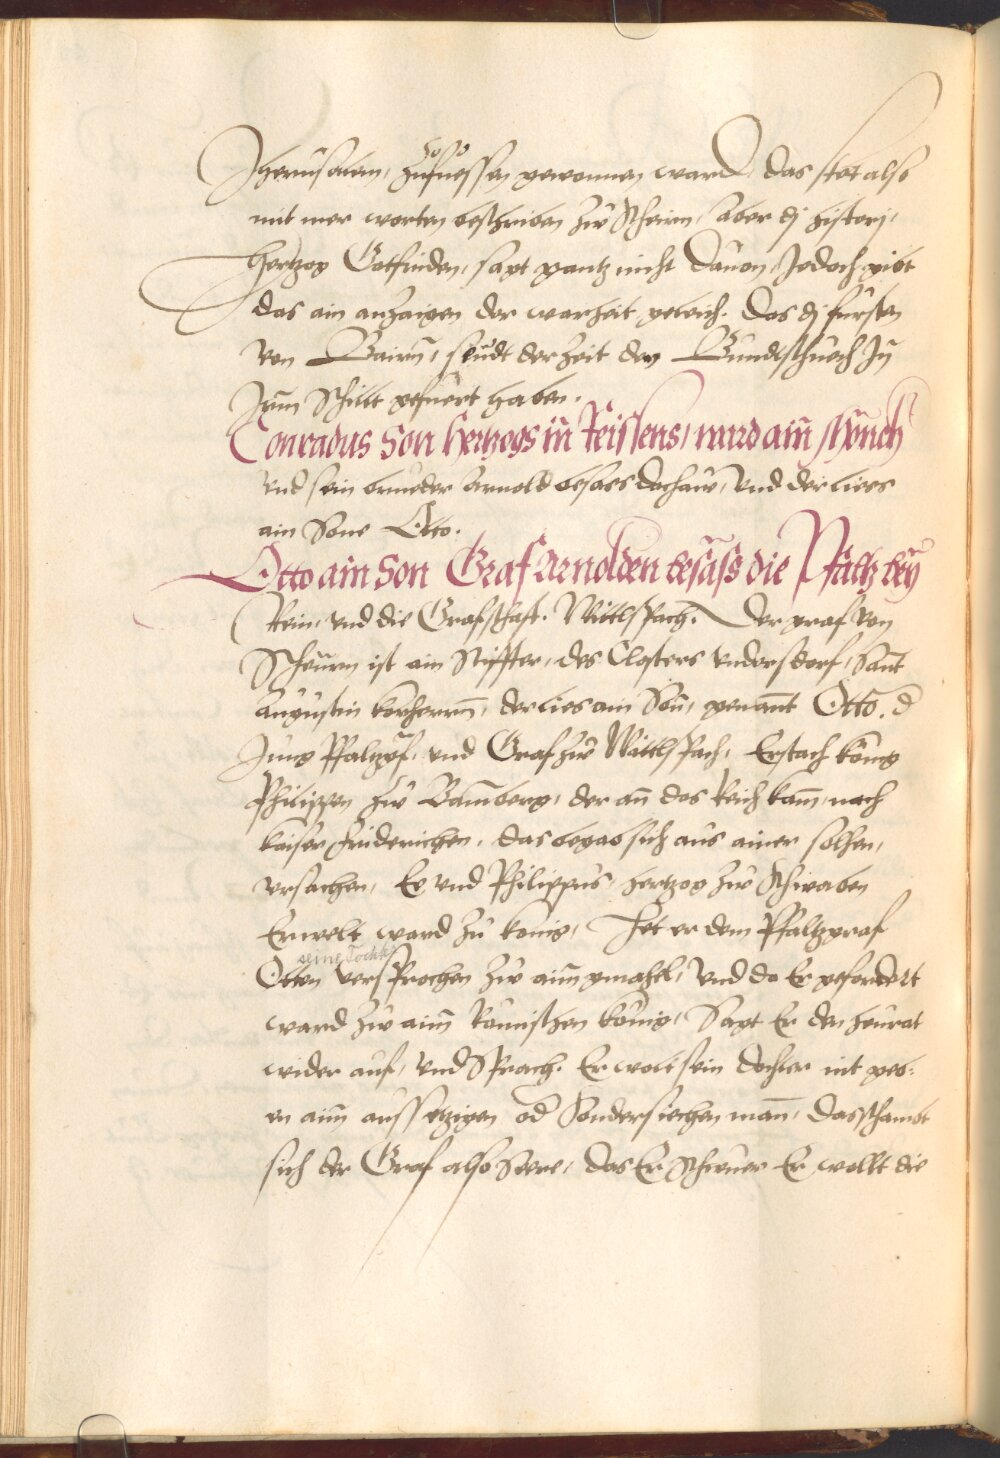 Jherusalem, Zufuessen gewonnen ward, das stet also
mit mer worten beschriben zw Scheirn, Aber dj histori,
Hertzog Gotfriden, sagt gantz nicht dauon, Jedoch gibt
das ain anzaigen der warheit geleich. Das dj fürsten
von Bairn, seudt der Zeit den Bundtschuech Jn
Jrm Schillt gefuert haben.
Conradus Son hertzogs in Reissens, wird ain Münch
Vnd sein brueder Arnold besass dachaw, Vnd der lies
ain Sone Otto.
Otto ain Son Graf Arnolden besass die Pfaltz bey
Rein, vnd die Grafschaft. Wittlspach. Der graf von
Scheurn ist ain Stiffter, des Closters Vnderstdorf, Sant
Augustin korherrn, der lies ain Son, genant Otto. d
Jung Pfaltzgf. vnd Graf zw Wittlspach, Erstach könig
Philippen zw Bamberg, der an das Reich kam, nach
kaiser Friderichen, das begab sich aus ainer solhen,
vrsachen, Ee vnd Philippus, hertzog zw Schwaben
Erwelt ward zu konig, Het er dem Pfaltzgraf
seine Tocht
Otten versprochen zw aim gmahel, Vnd da Er gefordert
ward zw aim Römischen könig, Sagt Er den heurat
wider auf, vnd Sprach. Er woll sein dochter nit geb-
en aim aussetzigen od Sondersiechen man, Das schambt
sich der Graf also Seere, das Er Schwuer Er wollt die